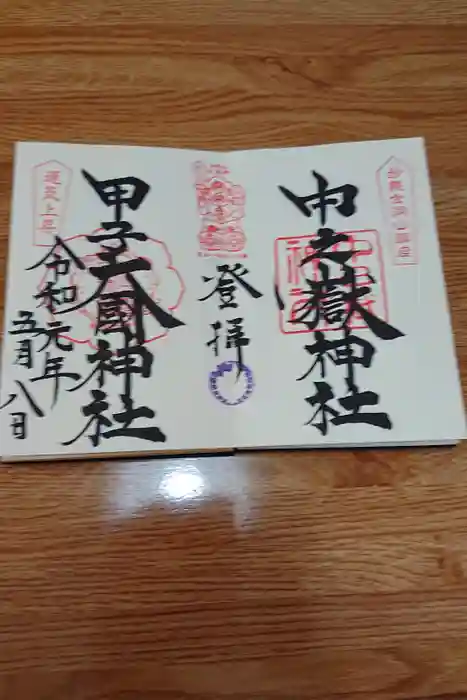 中之嶽神社
登拝
甲子大國神社
令和元年
五月八日